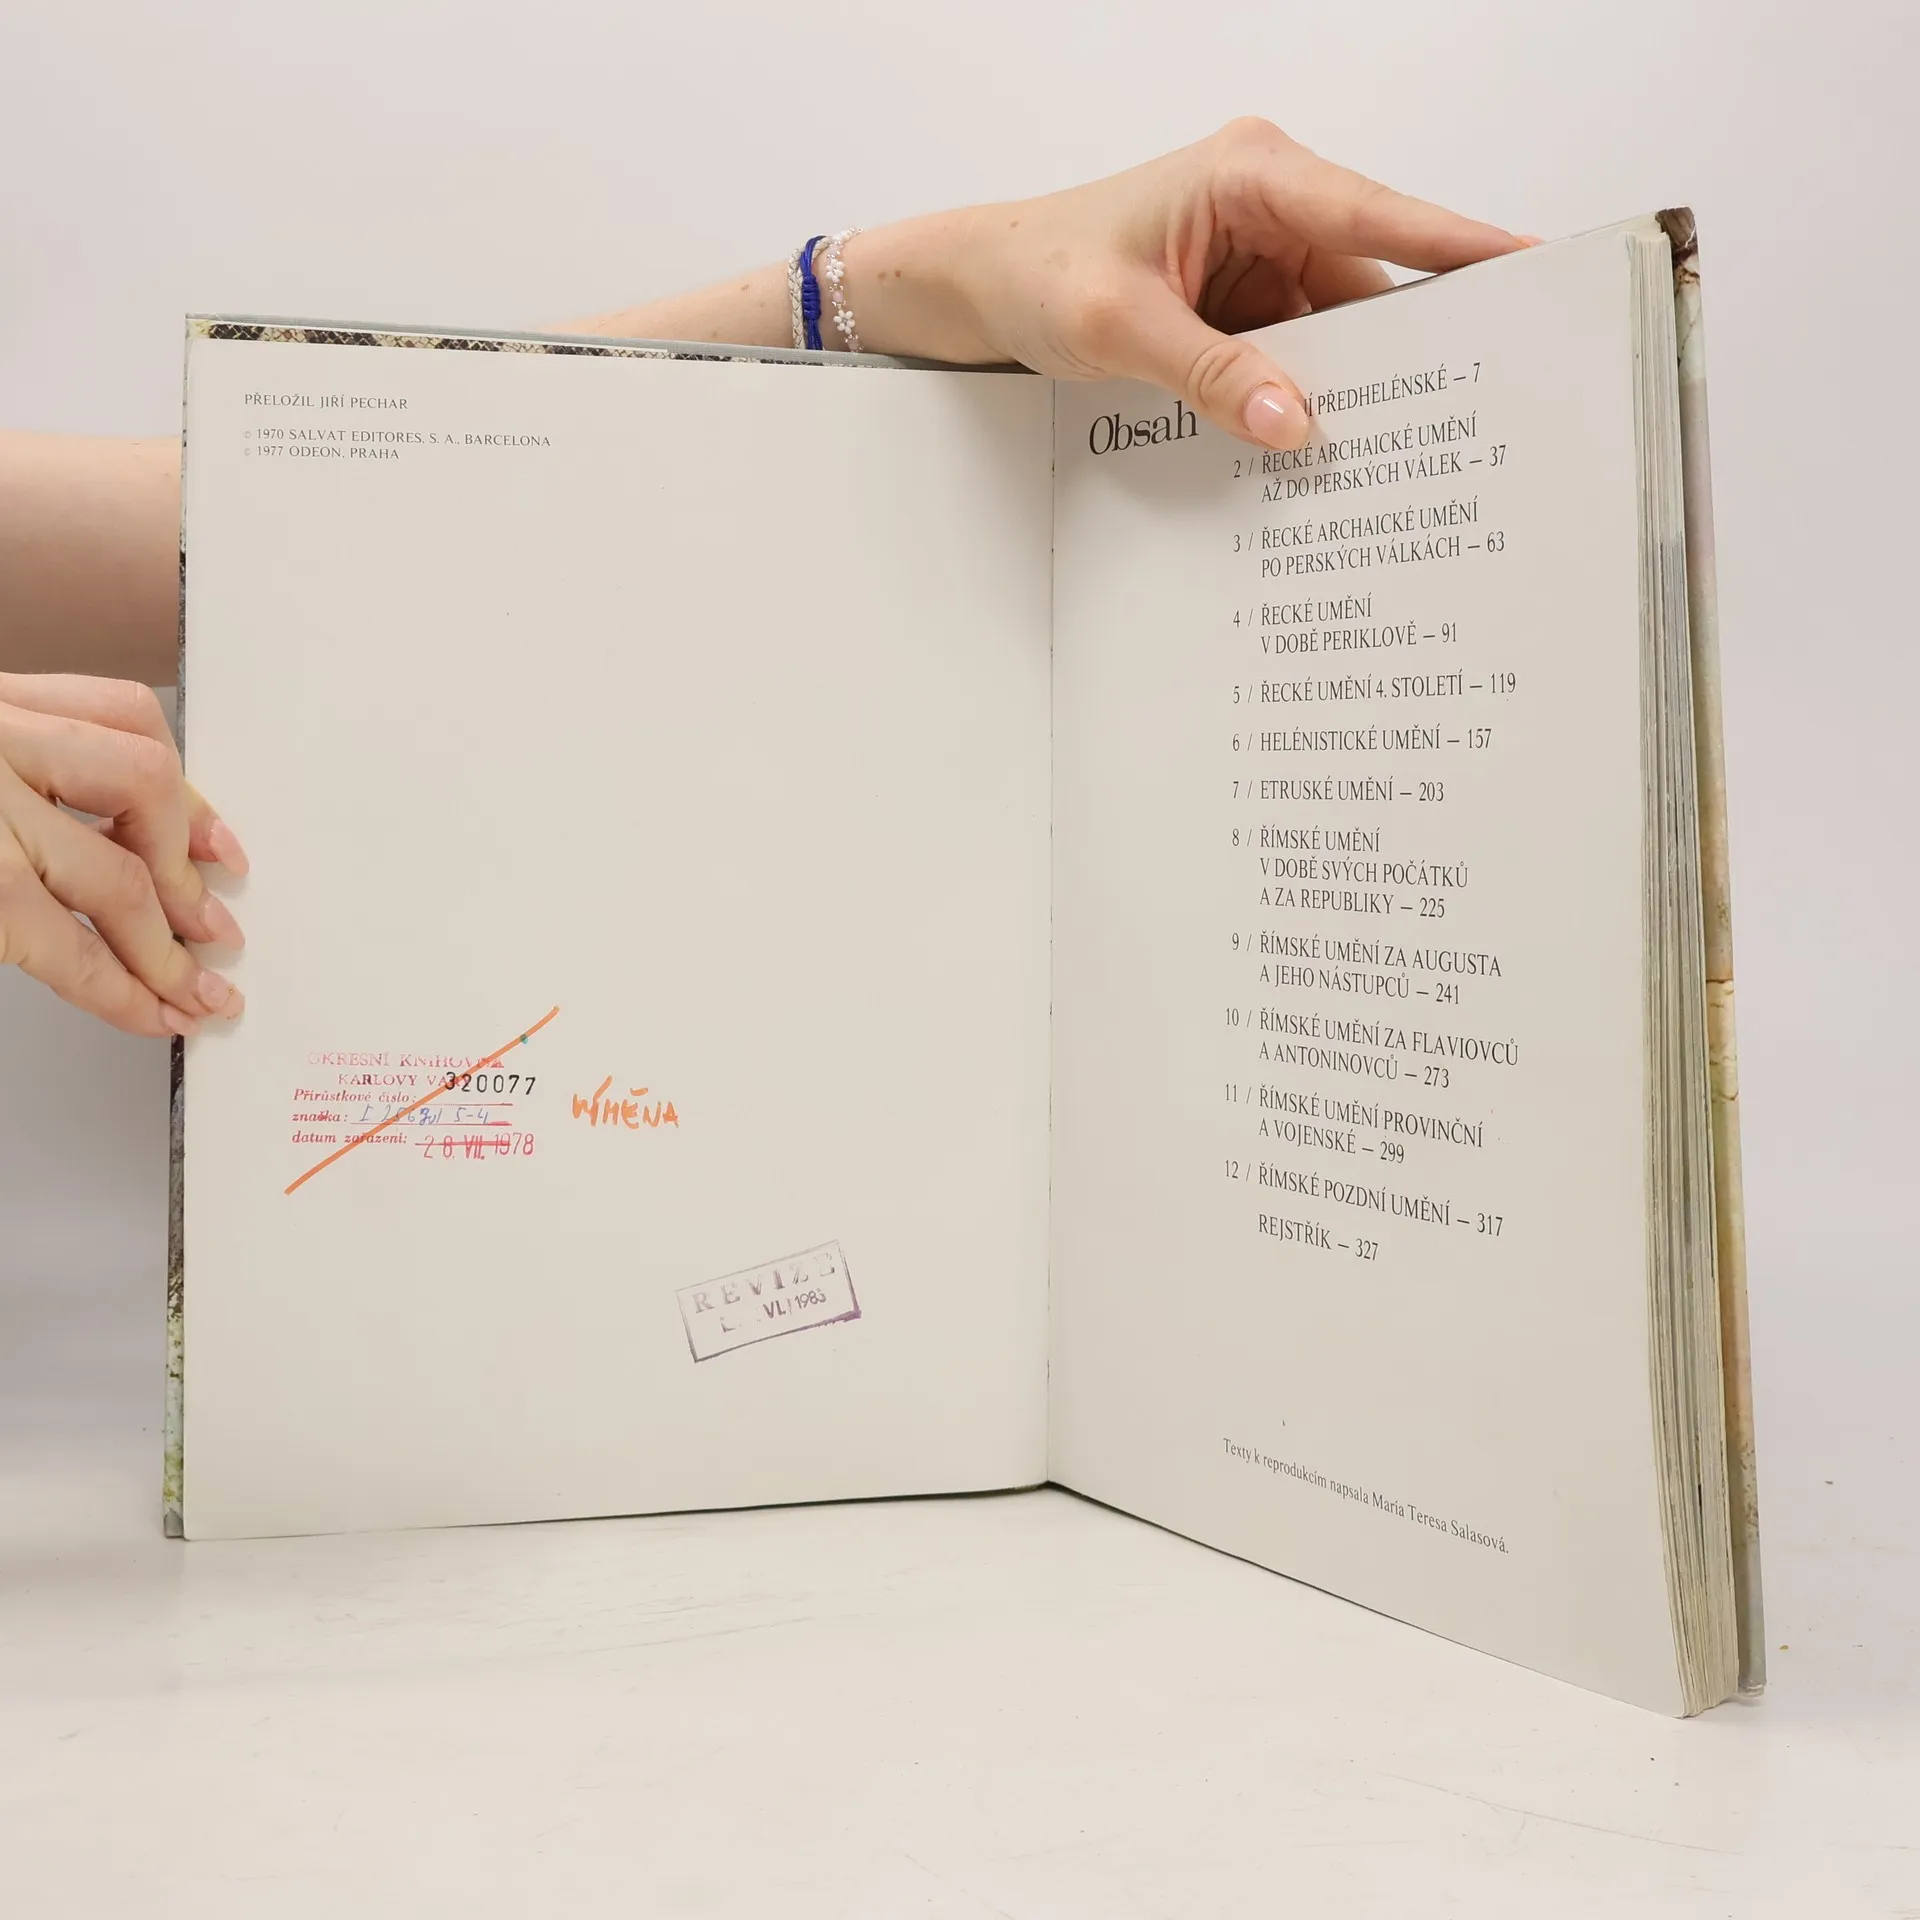 PŘELOŽIL JIŘÍ PECHAR
© 1970 SALVAT EDITORES, S. A., BARCELONA
© 1977 ODEON, PRAHA
OKRESNÍ KNIHOVNA
KARLOVY VARY
320077
Přírůstkové číslo:
značka:
datum zařazení: 28. VII. 1978
VÝMĚNA
REVIZE
VI. 1983
Obsah
PŘEDHELÉNSKÉ – 7
2 / ŘECKÉ ARCHAICKÉ UMĚNÍ
AŽ DO PERSKÝCH VÁLEK – 37
3 / ŘECKÉ ARCHAICKÉ UMĚNÍ
PO PERSKÝCH VÁLKÁCH – 63
4 / ŘECKÉ UMĚNÍ
V DOBĚ PERIKLOVĚ – 91
5 / ŘECKÉ UMĚNÍ 4. STOLETÍ – 119
6 / HELÉNISTICKÉ UMĚNÍ – 157
7 / ETRUSKÉ UMĚNÍ – 203
8 / ŘÍMSKÉ UMĚNÍ
V DOBĚ SVÝCH POČÁTKŮ
A ZA REPUBLIKY – 225
9 / ŘÍMSKÉ UMĚNÍ ZA AUGUSTA
A JEHO NÁSTUPCŮ – 241
10 / ŘÍMSKÉ UMĚNÍ ZA FLAVIOVCŮ
A ANTONINOVCŮ – 273
11 / ŘÍMSKÉ UMĚNÍ PROVINČNÍ
A VOJENSKÉ – 299
12 / ŘÍMSKÉ POZDNÍ UMĚNÍ – 317
REJSTŘÍK – 327
Texty k reprodukcím napsala María Teresa Salasová.